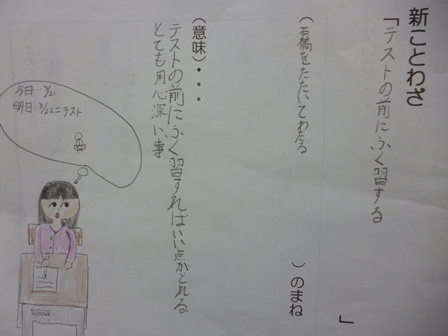 新ことわざ
「テストの前にふく習する」
(石橋をたたいてわたる)のまね
(意味)・・・
テストの前にふく習すればいい点がとれる
とても用心深い事
今日3/21
明日3/22ニテスト